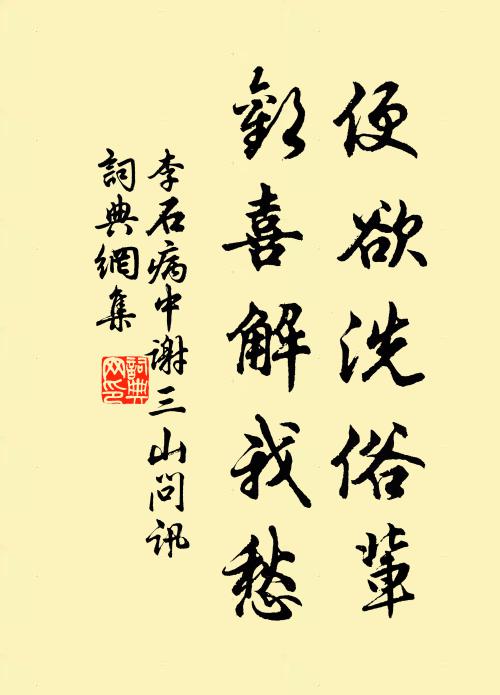 便欲洗俗輩
歡喜解我愁
李石病中謝三山問訊
詞典網集
詞典網印